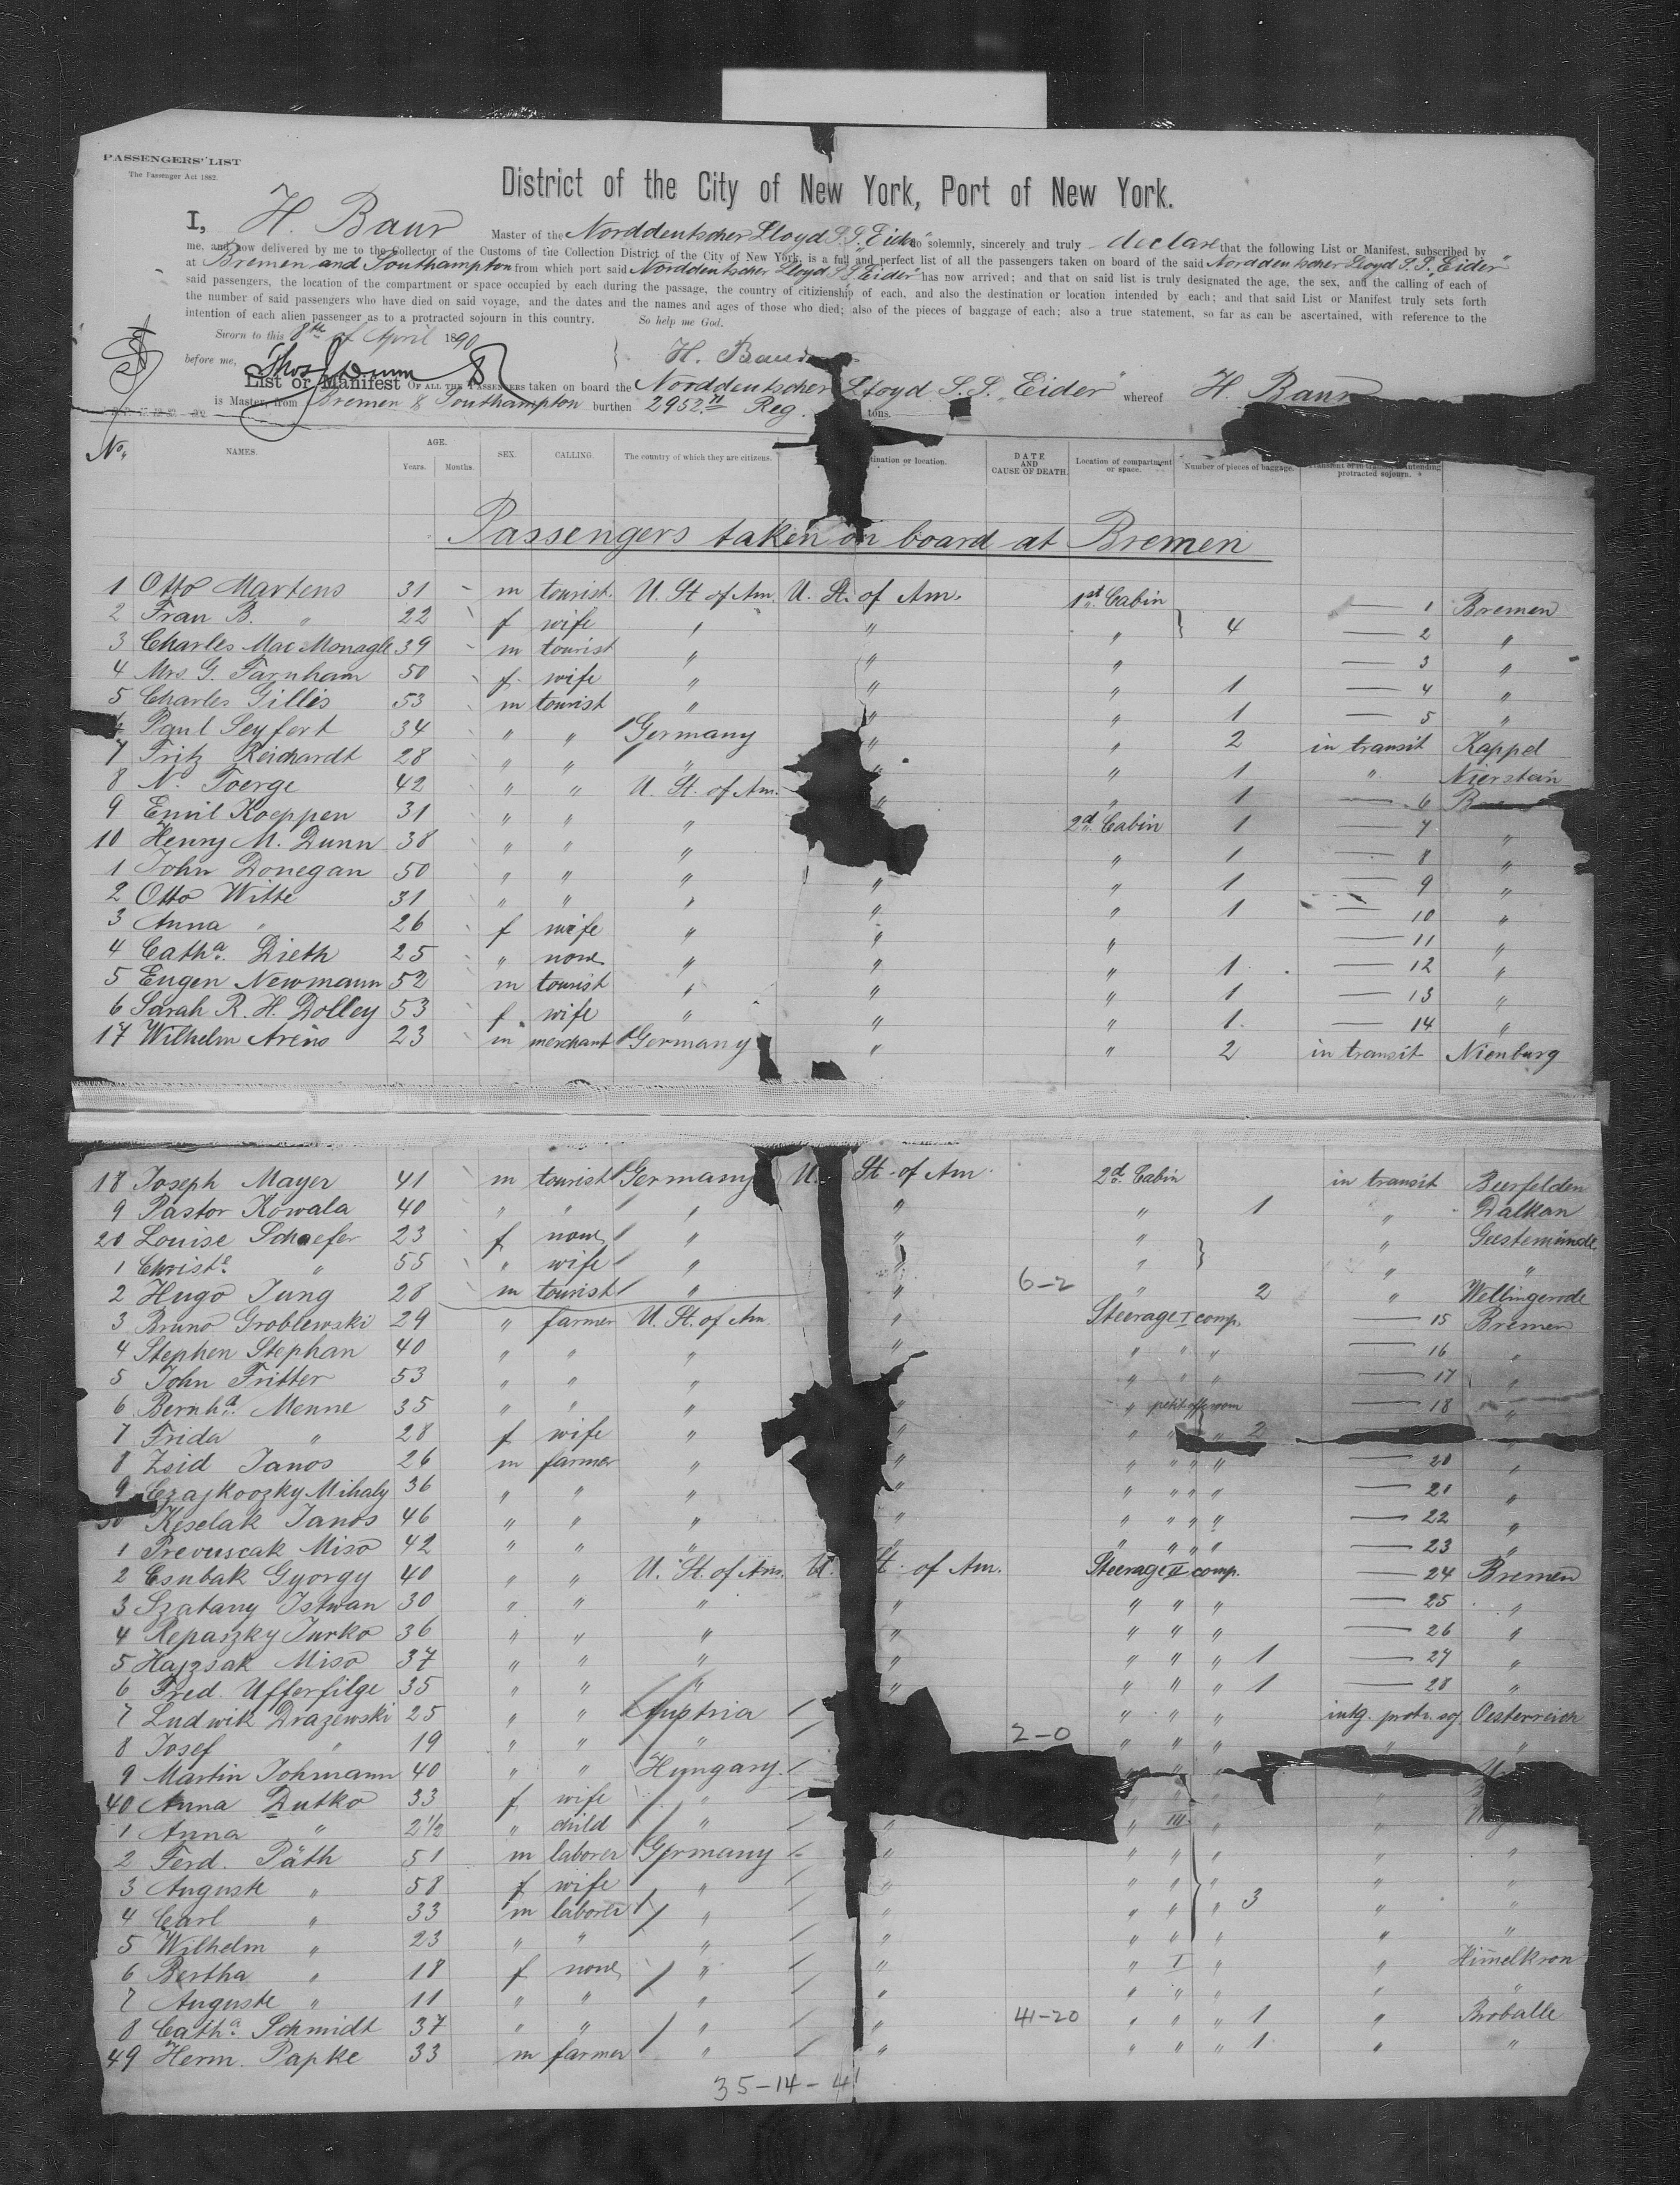 PASSENGERS' LIST
The Passenger Act 1882.
District of the City of New York, Port of New York.
I, H. Baur Master of the Norddeutscher Lloyd S.S. "Eider" do solemnly, sincerely and truly declare that the following List or Manifest, subscribed by
me, and now delivered by me to the Collector of the Customs of the Collection District of the City of New York, is a full and perfect list of all the passengers taken on board of the said Norddeutscher Lloyd S.S. "Eider"
at Bremen and Southampton from which port said Norddeutscher Lloyd S.S. "Eider" has now arrived; and that on said list is truly designated the age, the sex, and the calling of each of
said passengers, the location of the compartment or space occupied by each during the passage, the country of citizienship of each, and also the destination or location intended by each; and that said List or Manifest truly sets forth
the number of said passengers who have died on said voyage, and the dates and the names and ages of those who died; also of the pieces of baggage of each; also a true statement, so far as can be ascertained, with reference to the
intention of each alien passenger as to a protracted sojourn in this country. So help me God.
Sworn to this 8th of April 1890
before me, Thos Dunn } H. Baur
List or Manifest OF ALL THE PASSENGERS taken on board the Norddeutscher Lloyd S.S. "Eider" whereof H. Baur
is Master, from Bremen & Southampton burthen 2952 Reg. tons.
No. NAMES. AGE. Years. Months. SEX. CALLING. The country of which they are citizens. tination or location. DATE AND CAUSE OF DEATH. Location of compartment or space. Number of pieces of baggage. protracted sojourn.
Passengers taken on board at Bremen
1 Otto Martens 31 - m tourist. U. St. of Am. U. St. of Am. 1st Cabin — 1 Bremen
2 Frau B. " 22 f wife " " " } 4 — 2 "
3 Charles Mac Monagle 39 m tourist " " " — 3 "
4 Mrs. G. Farnham 50 f wife " " " 1 — 4 "
5 Charles Gillis 53 m tourist " " " 1 — 5 "
Paul Seyfert 34 " " Germany " " 2 in transit Kappel
7 Fritz Reichardt 28 " " " " " 1 " Nierstein
8 N. Toerge 42 " " U. St. of Am. " " 1 — 6
9 Emil Koeppen 31 " " " 2d Cabin 1 — 7 "
10 Henry M. Dunn 38 " " " " 1 — 8 "
1 John Donegan 50 " " " " " 1 — 9 "
2 Otto Witte 31 " " " " " 1 — 10 "
3 Anna " 26 f wife " " " — 11 "
4 Catha. Dieth 25 " none " " " 1 — 12 "
5 Eugen Newmann 52 m tourist " " " 1 — 13 "
6 Sarah R. H. Dolley 53 f wife " " " 1 — 14 "
17 Wilhelm Arens 23 m merchant Germany " " 2 in transit Nienburg
18 Joseph Mayer 41 m tourist Germany U. St. of Am. 2d Cabin in transit Beerfelden
9 Pastor Kowala 40 " " " " " 1 " Dalkan
20 Louise Schaefer 23 f none " " " " Geestemünde
1 Christe " 55 " wife " " " } " "
2 Hugo Jung 28 m tourist " " 6-2 " 2 " Wellingerode
3 Bruno Groblewski 29 " farmer U. St. of Am. " Steerage I comp. — 15 Bremen
4 Stephen Stephan 40 " " " " " " " — 16 "
5 John Fritter 53 " " " " " " — 17 "
6 Bernha. Menne 35 " " " " " — 18 "
7 Frida " 28 f wife " " " " " 2 "
8 Zsid Janos 26 m farmer " " " " " " — 20 "
9 Czajkoozky Mihaly 36 " " " " " " " " — 21 "
30 Kiselak Janos 46 " " " " " " " " — 22 "
1 Prevuscak Miso 42 " " " " " " " " — 23 "
2 Csubak Gyorgy 40 " " U. St. of Am. U. St. of Am. Steerage II comp. — 24 Bremen
3 Szatany Istwan 30 " " " " " " " — 25 "
4 Repaszky Jurko 36 " " " " " " " — 26 "
5 Hajzsak Miso 37 " " " " " " " 1 — 27 "
6 Fred. Ufferfilge 35 " " " " " " " 1 — 28 "
7 Ludwik Drazewski 25 " " Austria " " " intg. protr. soj. Oesterreich
8 Josef " 19 " " " 2-0 " " " " "
9 Martin Johmann 40 " " Hungary " "
40 Anna Dutko 33 f wife " " " "
1 Anna " 2½ " child " " " III " "
2 Ferd. Päth 51 m laborer Germany " " " " " "
3 Auguste " 58 f wife " " " " " " "
4 Carl " 33 m laborer " " " " " 3 " "
5 Wilhelm " 23 " " " " " " " " "
6 Bertha " 18 f none " " " I " " Himelkron
7 Auguste " 11 " " " " " " " " "
8 Catha. Schmidt 37 " " " " 41-20 " " " 1 " Broballe
49 Herm. Papke 33 m farmer " " " " " 1 " "
35-14-4